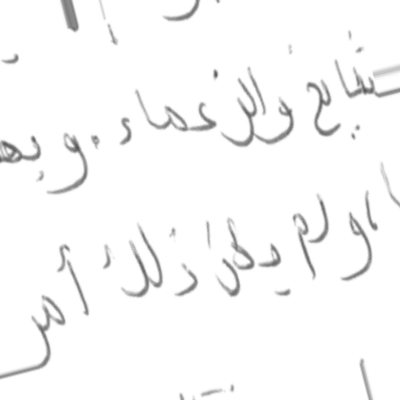 شايخ والزعماء. وبه
، ولم يكن ذلك أمر